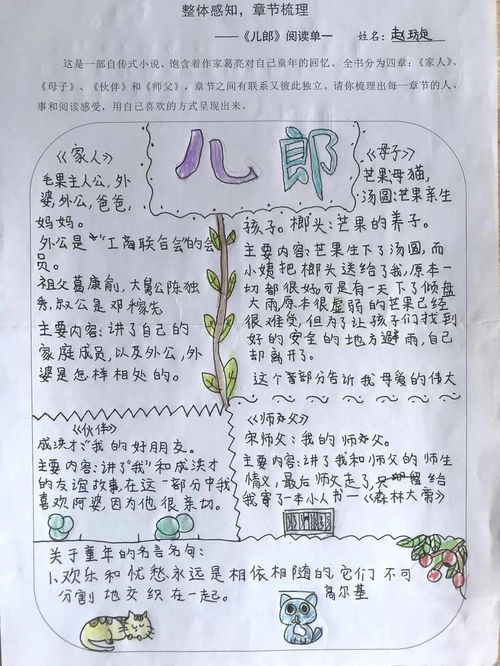 整体感知，章节梳理
——《儿郎》阅读单一
姓名：赵璇
这是一部自传式小说，饱含着作家葛亮对自己童年的回忆。全书分为四章：《家人》、
《母子》、《伙伴》和《师父》，章节之间有联系又彼此独立。请你梳理出每一章节的人、
事和阅读感受，用自己喜欢的方式呈现出来。
儿郎
《家人》
毛果主人公，外
婆，外公，爸爸，
妈妈。
外公是“工商联合会”的会
员。
祖父葛康俞，大舅公陈独
秀，叔公是邓稼先
主要内容：讲了自己的
家庭成员，以及外公，外
婆是怎样相处的。
《母子》
芒果母猫，
汤圆：芒果亲生
孩子。榔头：芒果的养子。
主要内容：芒果生下了汤圆，而
小姨把榔头送给了我，原本一
切都很好可是有一天下了倾盘
大雨，原本很虚弱的芒果已经
很难受，但为了让孩子们找到
好的安全的地方避雨，自己
却离开了。
这个部分告诉我母爱的伟大
《伙伴》
成洪才：“我的好朋友。
主要内容：讲了“我”和成洪才
的友谊故事在这一部分中我
喜欢阿婆，因为他很亲切。
《师父》
宋师父：我的师父。
主要内容：讲了我和师父的师生
情义，最后师父走了，留给
我寄了一本小人书—《森林大雷》
关于童年的名言名句：
1、欢乐和忧愁永远是相依相随的，它们不可
分割地交织在一起。 高尔基